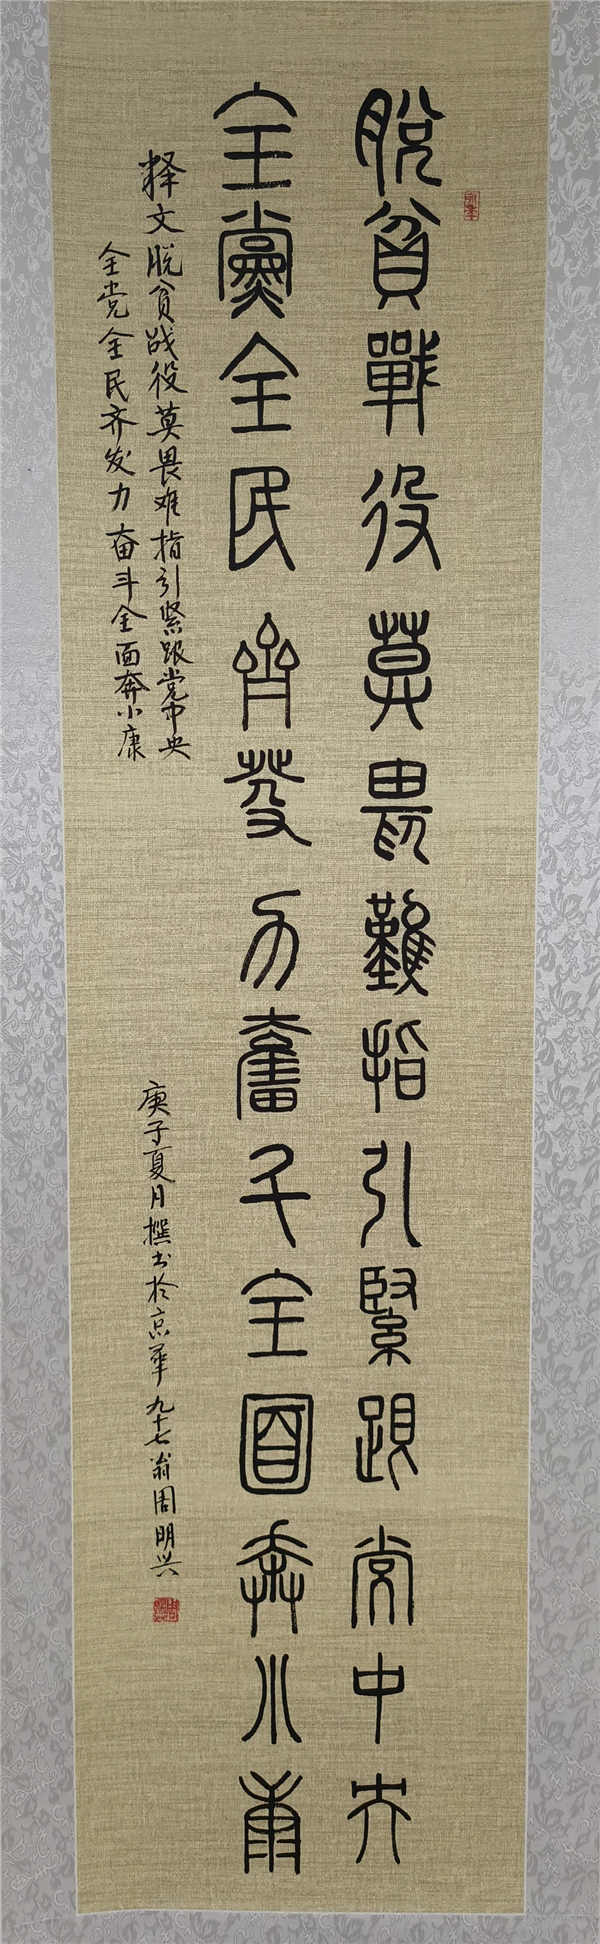 脫貧戰役莫畏難指引緊跟党中央
全黨全民齊發力奮斗全面奔小康
释文脱贫战役莫畏难指引紧跟党中央
全党全民齐发力奋斗全面奔小康
庚子夏月撰书於京华九十七翁周明兴